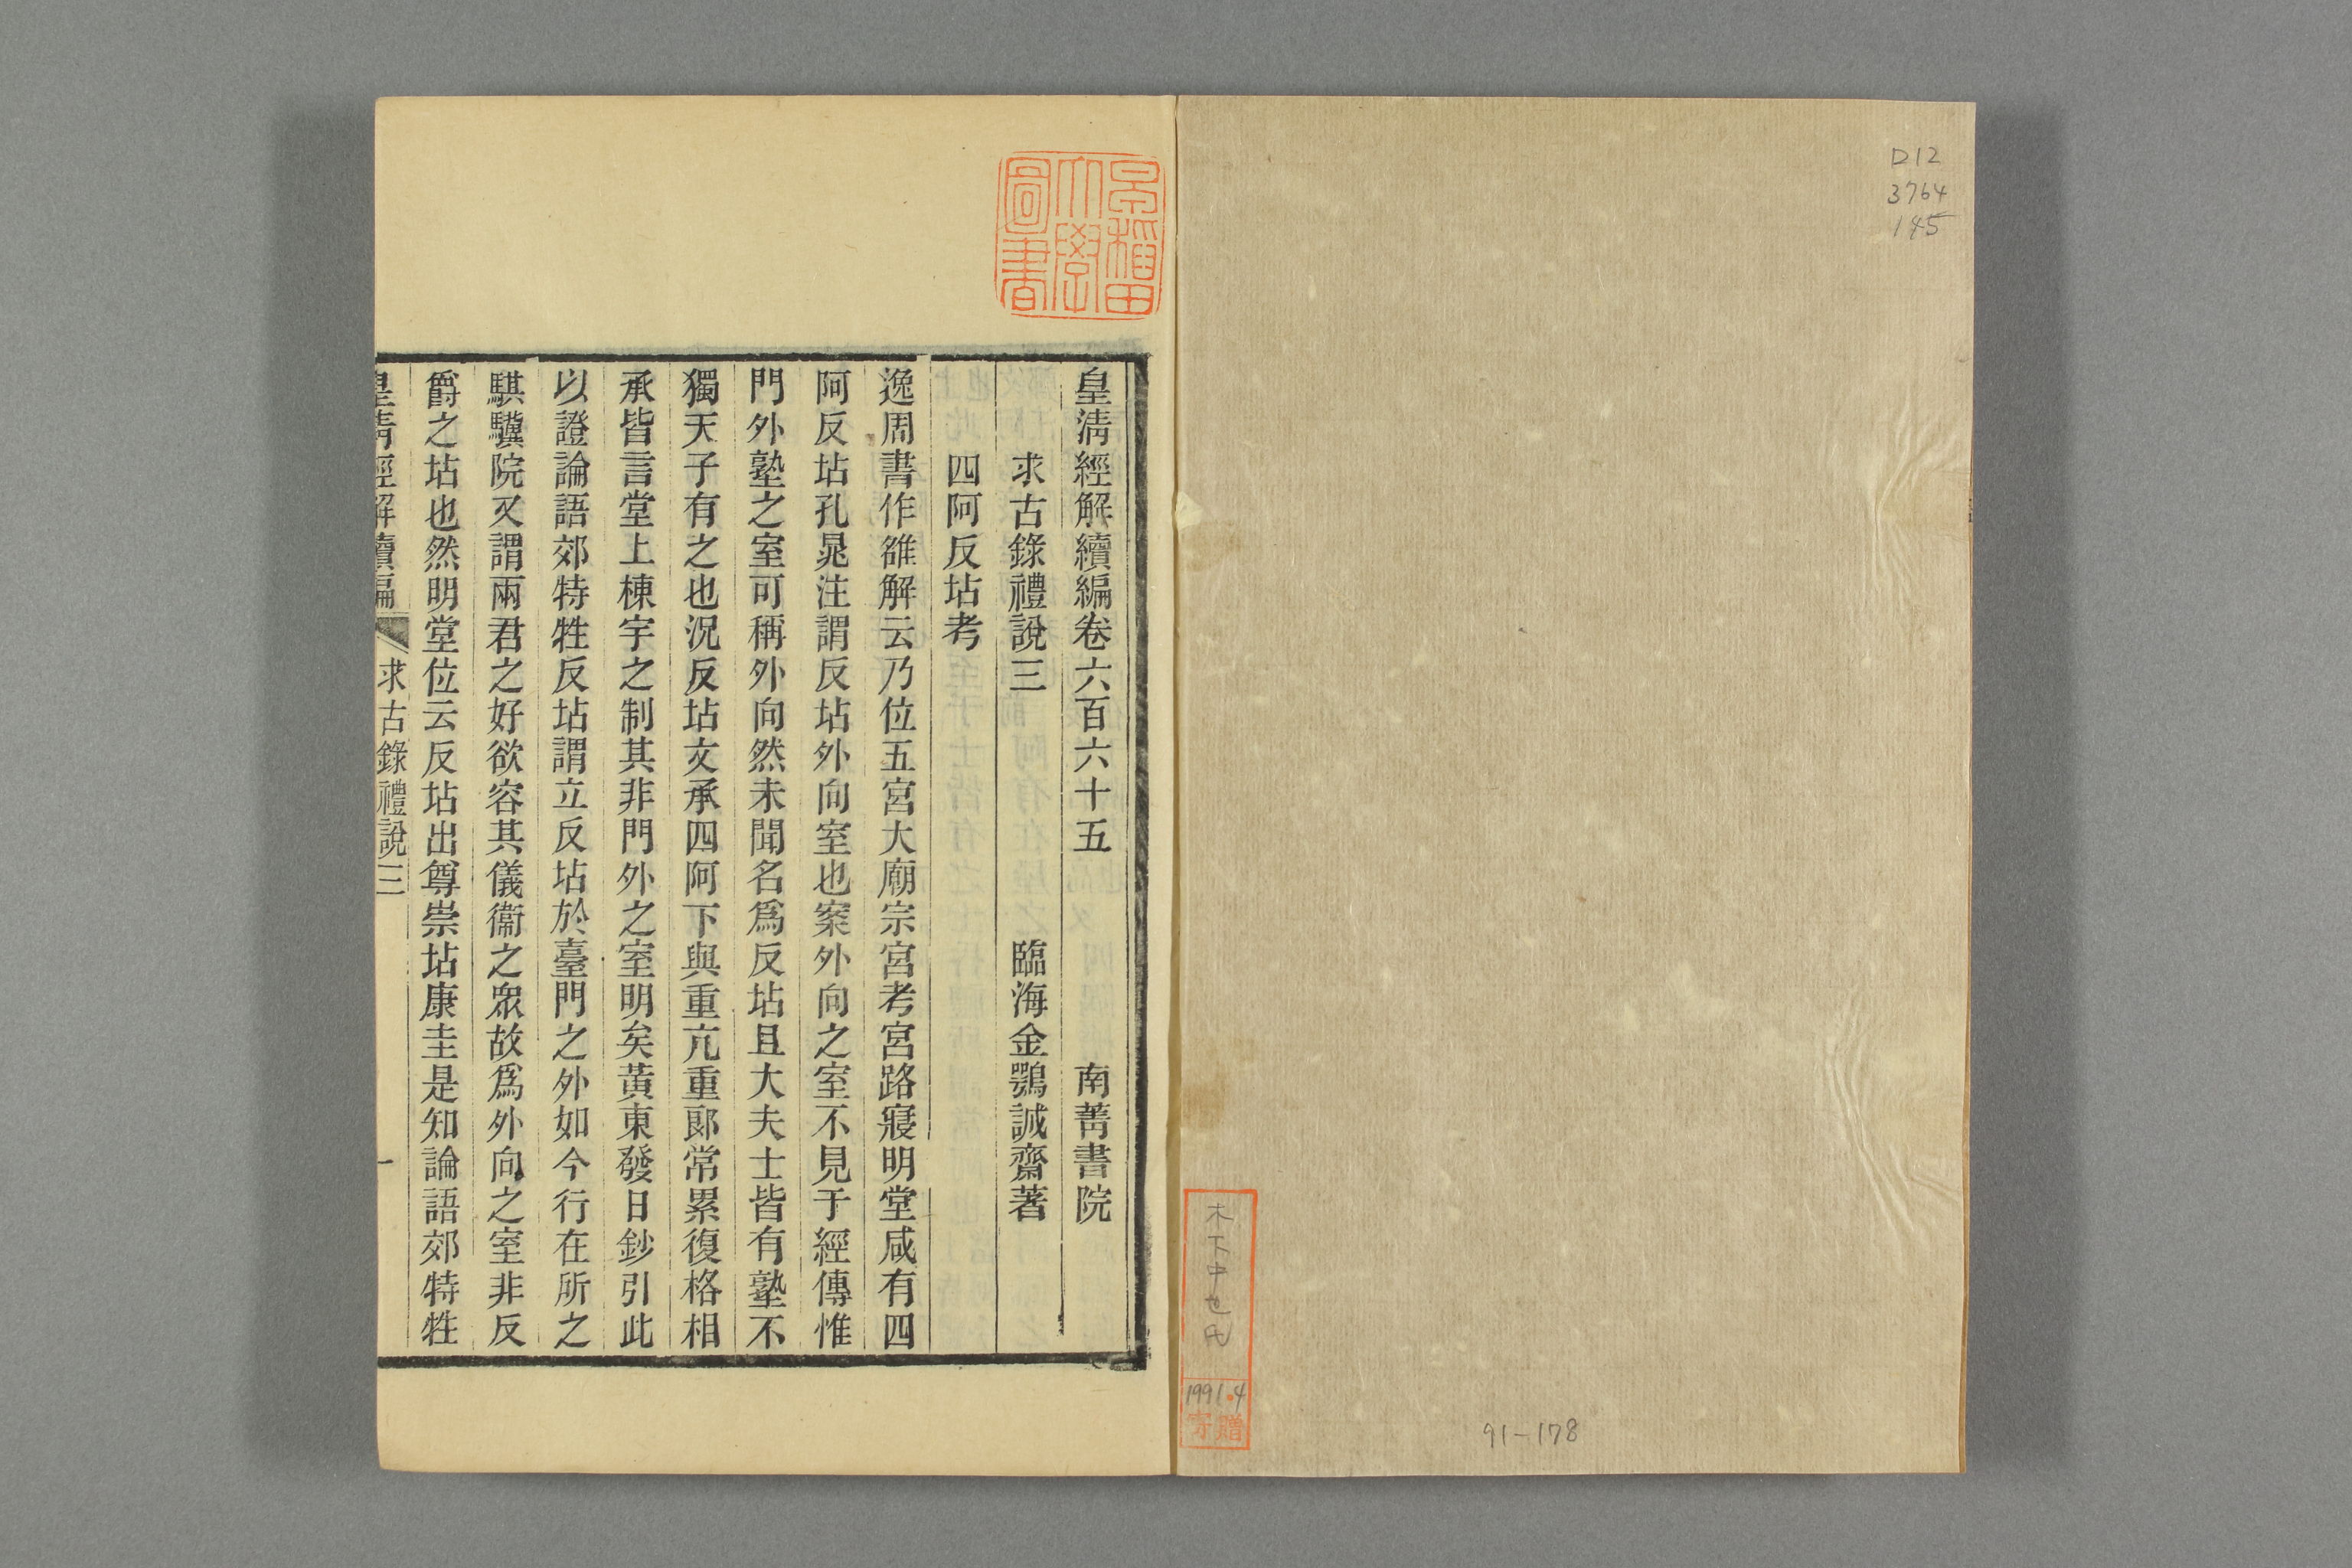 D12
3764
145
木下中也氏
1991.4
寄贈
91-178
早稲田
大學
圖書
皇清經解續編卷六百六十五　南菁書院
求古錄禮說三　臨海金鶚誠齋著
四阿反坫考
逸周書作雒解云乃位五宮大廟宗宮考宮路寢明堂咸有四
阿反坫孔晁注謂反坫外向室也案外向之室不見于經傳惟
門外塾之室可稱外向然未聞名爲反坫且大夫士皆有塾不
獨天子有之也況反坫文承四阿下與重亢重郞常累復格相
承皆言堂上棟宇之制其非門外之室明矣黃東發日鈔引此
以證論語郊特牲反坫謂立反坫於臺門之外如今行在所之
騏驥院又謂兩君之好欲容其儀衞之眾故爲外向之室非反
爵之坫也然明堂位云反坫出尊崇坫康圭是知論語郊特牲
皇清經解續編　求古錄禮說三　一